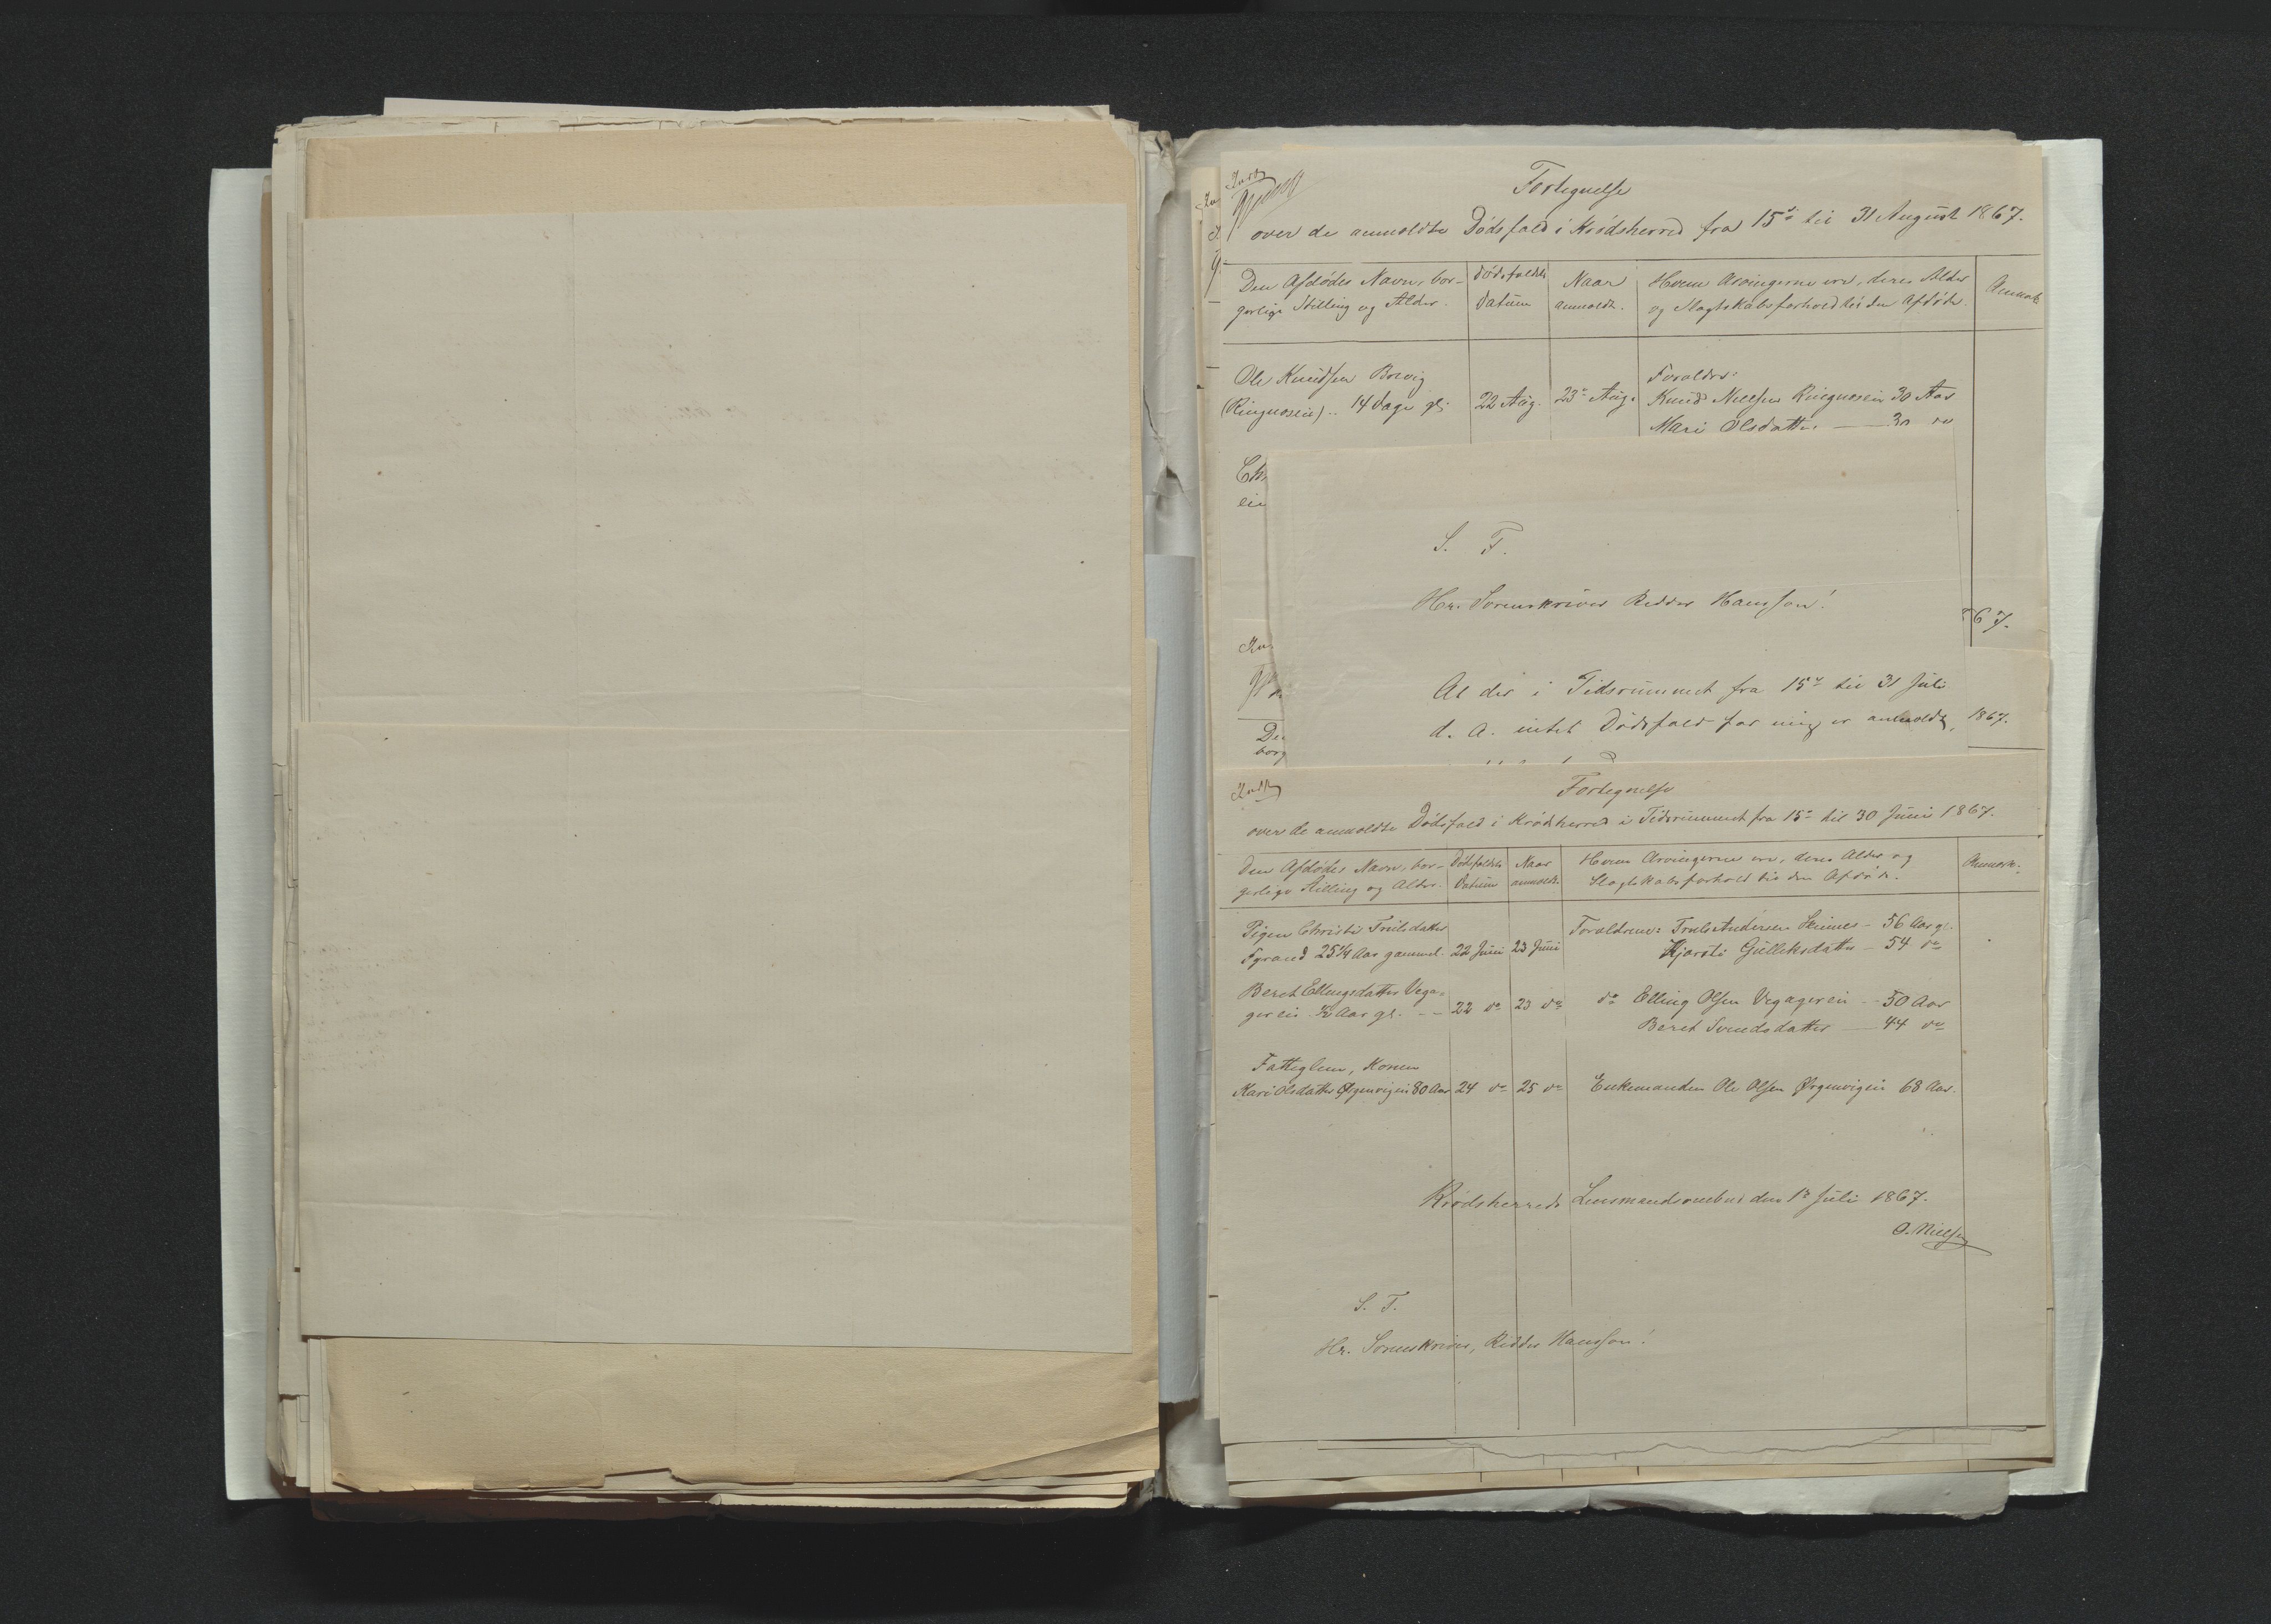 Indf
Fortegnelse
over de anmeldte Dødsfald i Krødsherred fra 15de til 31 August 1867.
Den Afdødes Navn, bor-
gerlige Stilling og Alder.
Dødsfaldets
Datum
Naar
anmeldt.
Hvem Arvingerne ere, deres Alder
og Slægtskabsforhold til den Afdøde.
Anmærk.
Ole Knudsen Borvig
(Ringneseie) .. 14 Dage gl.
22 Aug.
23de Aug.
Forældre:
Knud Nielsen Ringneseie 30 Aar
Mari Olsdatter — 30 do
Chr
eie
S. T.
Hr. Sorenskriver Ridder Hansson!
867.
At der i Tidsrummet fra 15de til 31 Juli
d. A. intet Dødsfald for mig er anmeldt,
1867.
De
borg
Indf
Fortegnelse
over de anmeldte Dødsfald i Krødsherred i Tidsrummet fra 15de til 30 Juni 1867.
Den Afdødes Navn, bor-
gerlige Stilling og Alder.
Dødsfaldets
Datum
Naar
anmeldt.
Hvem Arvingerne ere, deres Alder og
Slægtskabsforhold til den Afdøde.
Anmærk.
Pigen Christi Trulsdatter
Fyrand 25 1/4 Aar gammel. 22 Juni 23 Juni
Forældrene: Truls Andersen Skinnes - 56 Aar gl.
Kjersti Gulliksdatter - 54 do
Beret Ellingsdatter Vega-
gereie ½ Aar gl. -- 22 do 23 do
do Elling Olsen Vegagereie - 50 Aar
Beret Svendsdatter — 44 do
Fattiglem, Konen
Kari Olsdatter Ørgenvigeie 80 Aar 24 do 25 do Enkemanden Ole Olsen Ørgenvigeie 68 Aar.
Krødsherreds Lensmandsombud den 1ste Juli 1867.
O. Nielsen
S. T.
Hr. Sorenskriver, Ridder Hansson!